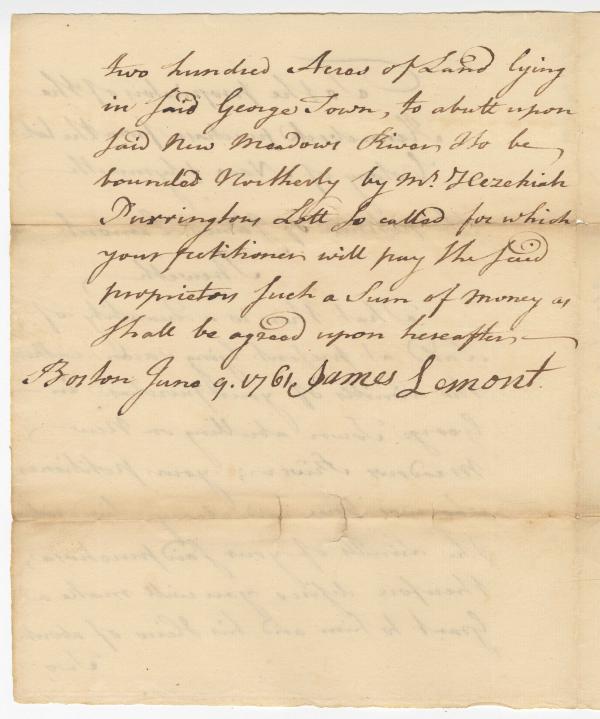 two hundred Acres of Land lying
in said George Town, to abutt upon
said New Meadows River, & to be
bounded Northerly by Mr. Hezekiah
Purringtons Lott so called for which
your petitioner will pay the said
proprietors such a Sum of Money as
shall be agreed upon hereafter
Boston June 9. 1761. James Lemont.